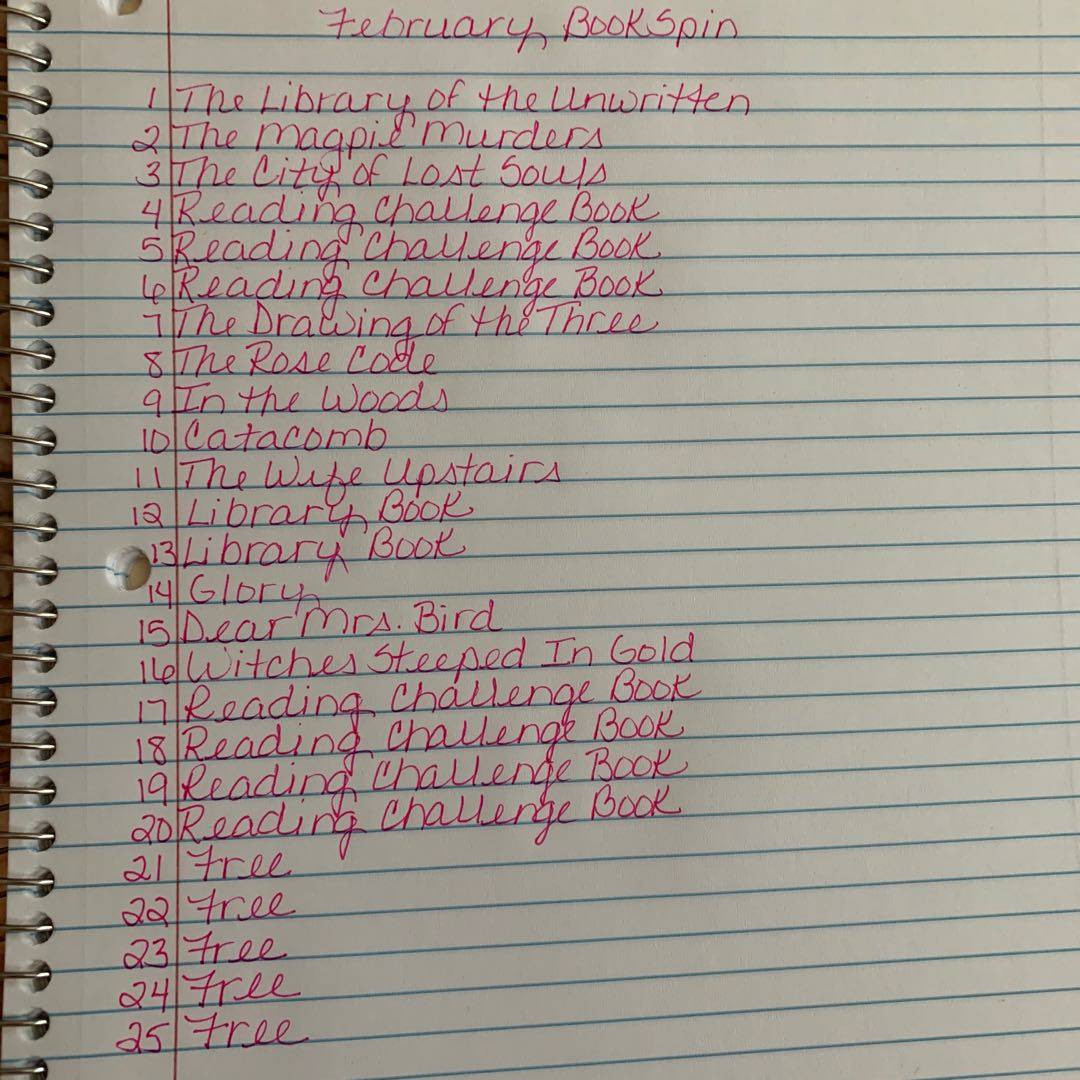 February BookSpin
1 The Library of the Unwritten
2 The Magpie Murders
3 The City of Lost Souls
4 Reading Challenge Book
5 Reading Challenge Book
6 Reading Challenge Book
7 The Drawing of the Three
8 The Rose Code
9 In the Woods
10 Catacomb
11 The Wife Upstairs
12 Library Book
13 Library Book
14 Glory
15 Dear Mrs. Bird
16 Witches Steeped In Gold
17 Reading Challenge Book
18 Reading Challenge Book
19 Reading Challenge Book
20 Reading Challenge Book
21 Free
22 Free
23 Free
24 Free
25 Free